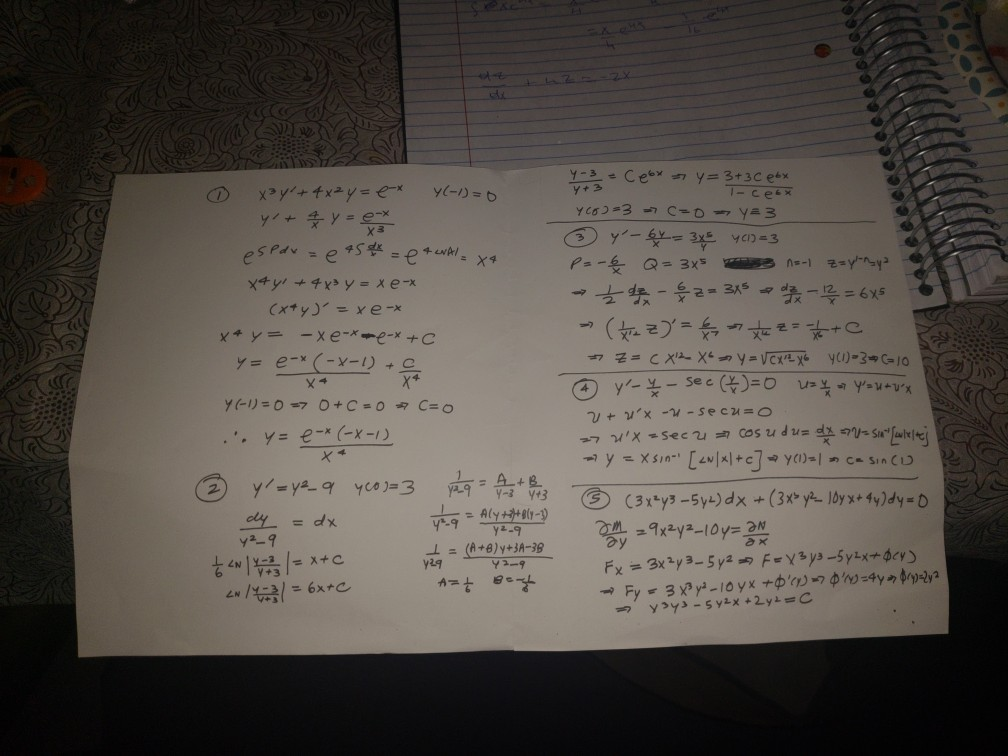 dz/dx + 4z = -2x
① x³y' + 4x²y = e⁻ˣ y(-1) = 0
y' + 4/x y = e⁻ˣ/x³
e^∫Pdx = e^4∫dx/x = e^4 ln|x| = x⁴
x⁴y' + 4x³y = xe⁻ˣ
(x⁴y)' = xe⁻ˣ
x⁴y = -xe⁻ˣ - e⁻ˣ + C
y = e⁻ˣ(-x-1)/x⁴ + C/x⁴
y(-1) = 0 ⇒ 0 + C = 0 ⇒ C = 0
∴ y = e⁻ˣ(-x-1)/x⁴
② y' = y² - 9 y(0) = 3
dy/(y²-9) = dx
1/6 ln|(y-3)/(y+3)| = x + C
ln|(y-3)/(y+3)| = 6x + C
1/(y²-9) = A/(y-3) + B/(y+3)
1/(y²-9) = (A(y+3)+B(y-3))/(y²-9)
1/(y²-9) = ((A+B)y+3A-3B)/(y²-9)
A = 1/6 B = -1/6
(y-3)/(y+3) = Ce⁶ˣ ⇒ y = (3+3Ce⁶ˣ)/(1-Ce⁶ˣ)
y(0) = 3 ⇒ C = 0 ⇒ y = 3
③ y' - 6y/x = 3x⁵/y y(1) = 3
P = -6/x Q = 3x⁵ n = -1 z = y¹⁻ⁿ = y²
⇒ 1/2 dz/dx - 6/x z = 3x⁵ ⇒ dz/dx - 12/x = 6x⁵
⇒ (1/x¹² z)' = 6/x⁷ ⇒ 1/x¹² z = -1/x⁶ + C
⇒ z = Cx¹² - x⁶ ⇒ y = √(Cx¹²-x⁶) y(1) = 3 ⇒ C = 10
④ y' - y/x - sec(y/x) = 0 u = y/x ⇒ y' = u + u'x
u + u'x - u - sec u = 0
⇒ u'x = sec u ⇒ cos u du = dx/x ⇒ u = sin⁻¹[ln|x|+c]
⇒ y = x sin⁻¹[ln|x|+c] ⇒ y(1) = 1 ⇒ c = sin(1)
⑤ (3x²y³ - 5y²)dx + (3x³y² - 10yx + 4y)dy = 0
∂M/∂y = 9x²y² - 10y = ∂N/∂x
Fx = 3x²y³ - 5y² ⇒ F = x³y³ - 5y²x + φ(y)
⇒ Fy = 3x³y² - 10yx + φ'(y) ⇒ φ'(y) = 4y ⇒ φ(y) = 2y²
⇒ x³y³ - 5y²x + 2y² = C